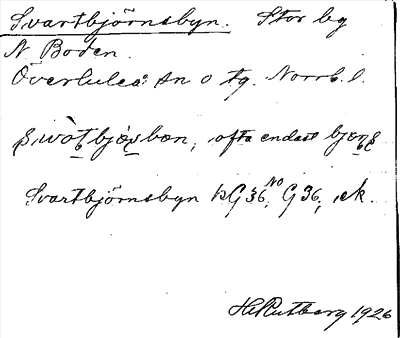 Svartbjörnsbyn. Stor by
N Boden.
Överluleå sn o tg. Norrb. l.
ofta endast
Svartbjörnsbyn KG 36, NO G 36, ek.
H. Rutberg 1926